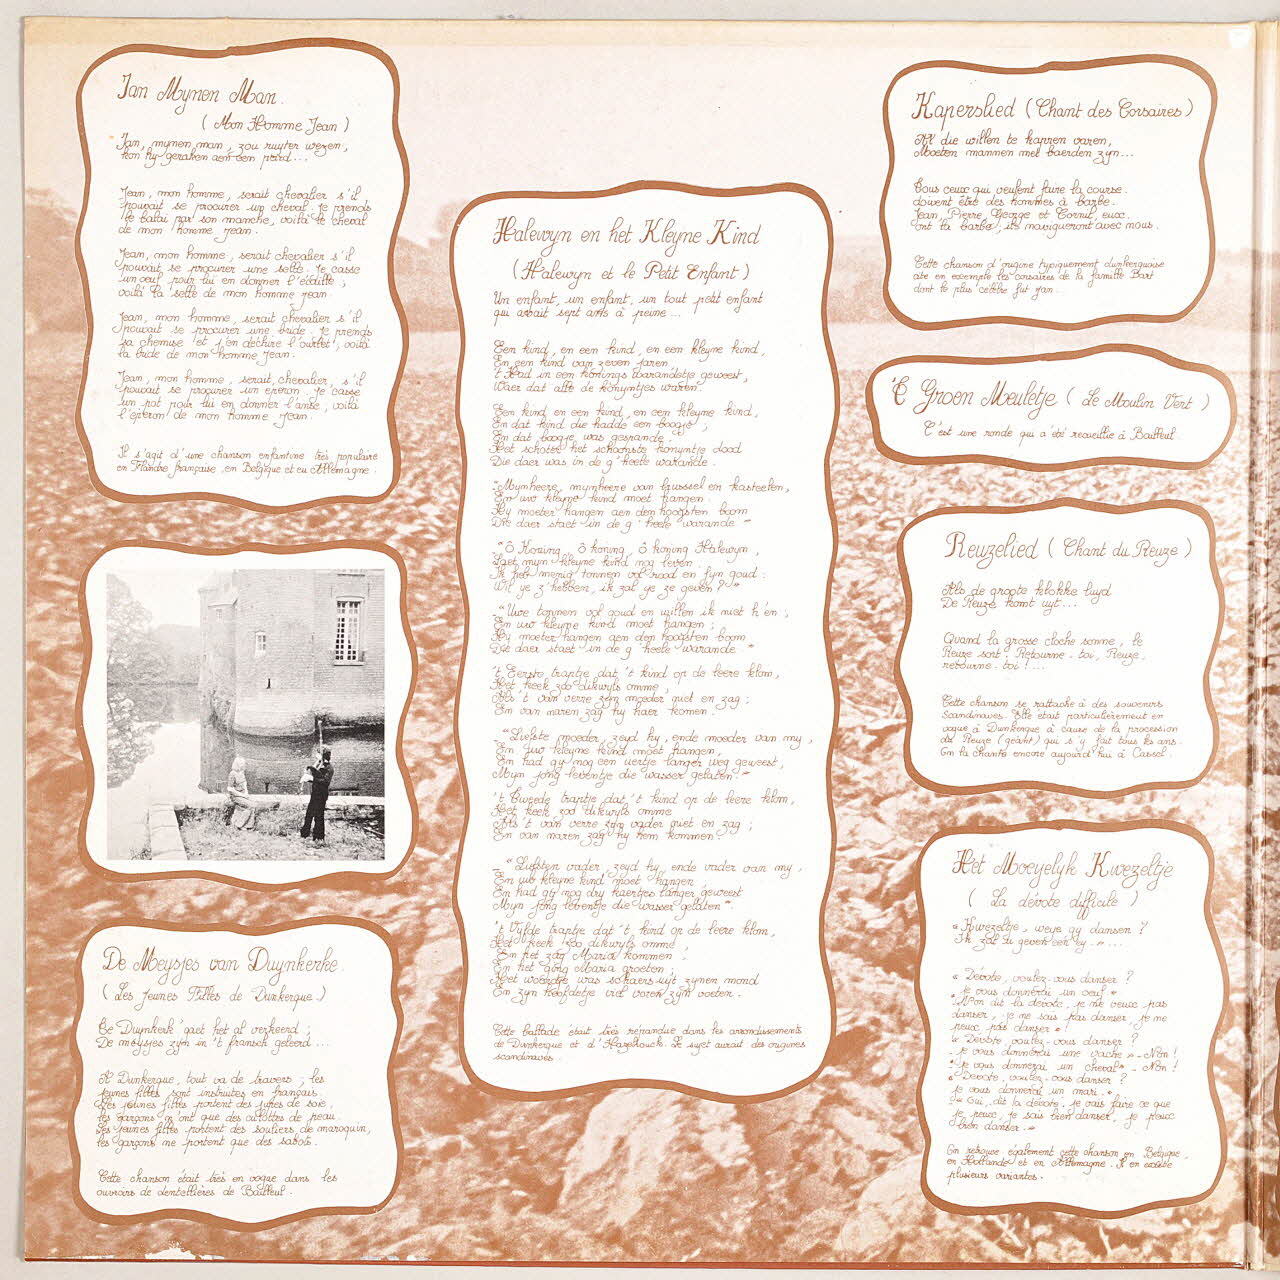 Jan Mynen Man.
( Mon Homme Jean )
Jan, mynen man, zou ruyter wezen,
kon hy geraken aen een pard...
Jean, mon homme, serait chevalier s'il
pouvait se procurer un cheval. Je prends
le balai par son manche, voilà le cheval
de mon homme Jean.
Jean, mon homme, serait chevalier s'il
pouvait se procurer une selle. Je casse
un oeuf pour lui en donner l'écaille ;
voilà la selle de mon homme Jean.
Jean, mon homme, serait chevalier s'il
pouvait se procurer une bride. Je prends
sa chemise et j'en déchire l'ourlet ; voilà
la bride de mon homme Jean.
Jean, mon homme, serait chevalier, s'il
pouvait se procurer un eperon. Je casse
un pot pour lui en donner l'anse ; voilà
l'eperon de mon homme Jean.
Il s'agit d'une chanson enfantine très populaire
en Flandre française, en Belgique et en Allemagne.
De Meysjes van Duynkerke.
( Les Jeunes Filles de Dunkerque )
Te Duynkerk' gaet het al verkeerd ;
De meysjes zyn in 't fransch geleerd...
A Dunkerque, tout va de travers ; les
jeunes filles sont instruites en français.
Les jeunes filles portent des jupes de soie,
les garçons n'ont que des culottes de peau.
Les jeunes filles portent des souliers de maroquin,
les garçons ne portent que des sabots.
Cette chanson était très en vogue dans les
ouvroirs de dentellières de Bailleul.
Halewyn en het Kleyne Kind
( Halewyn et le Petit Enfant )
Un enfant, un enfant, un tout petit enfant
qui avait sept ans à peine...
Een kind, en een kind, en een kleyne kind,
En een kind van zeven jaren,
't Had in een konings warandetje geweest,
Waer dat alle de konyntjes waren.
Een kind en een kind, en een kleyne kind,
En dat kind die hadde een boogje ;
En dat boogje was gespande.
Het schoter het schoonste konyntje dood
Die daer was in de g'heele warande.
"Mynheere, mynheere van brussel en kasteelen,
En uw kleyne kind moet hangen.
Hy moeter hangen aen den hoogsten boom
Die daer staet in de g'heele warande "
"Ô Koning, ô koning, ô koning Halewyn,
Laet myn kleyne kind nog leven.
Ik heb menig tonnen vol rood en fyn goud :
Wil je z'hebben, ik zal ze ze geven ? "
"Uwe tonnen vol goud en willen ik niet h'en ;
En uw kleyne kind moet hangen ;
Hy moeter hangen aen den hoogsten boom
Die daer staet in de g'heele warande. "
't Eerste traptje dat 't kind op de leere klom,
Het keek zoo dikwyls omme,
Als 't van verre zyn moeder niet en zag ;
En van maren zag hy haer komen.
"Liefste moeder, zeyd hy, ende moeder van my,
En uw kleyne kind moet hangen,
En had gy nog een uertje langer weg geweest,
Myn jong leventje die wasser gelaten. "
't Tweede traptje dat 't kind op de leere klom,
Het keek zoo dikwyls omme
Als 't van verre zyn vader niet en zag ;
En van maren zag hy hem kommen.
" Liefsten vader, zeyd hy, ende vader van my,
En uw kleyne kind moet hangen ;
En had gy nog dry uertjes langer geweest
Myn jong leventje die wasser gelaten ".
't Vyfde traptje dat 't kind op de leere klom,
Het keek zoo dikwyls omme,
En het zag Maria kommen ;
En het ging Maria groeten ;
Het woordje was schaers uyt zynen mond
En zyn hoofdetje viel voren zyn voeten.
Cette ballade était très répandue dans les arrondissements
de Dunkerque et d'Hazebrouck. Le sujet aurait des origines
scandinaves.
Kaperslied ( Chant des Corsaires )
Al die willen te kapren varen,
Moeten mannen met baerden zyn...
Tous ceux qui veulent faire la course
doivent être des hommes à barbe.
Jean, Pierre, George et Corneil, eux,
ont la barbe, ils navigueront avec nous.
Cette chanson d'origine typiquement dunkerquoise
cite en exemple les corsaires de la famille Bart
dont le plus célèbre fut Jan.
'E Groen Meuletje ( Le Moulin Vert )
C'est une ronde qui a été recueillie à Bailleul.
Reuzelied ( Chant du Reuze )
Als de groote klokke luyd
De Reuze komt uyt...
Quand la grosse cloche sonne, le
Reuze sort. Retourne-toi, Reuze,
retourne-toi !...
Cette chanson se rattache à des souvenirs
Scandinaves. Elle était particulièrement en
vogue à Dunkerque à cause de la procession
du Reuze (géant) qui s'y fait tous les ans.
On la chante encore aujourd'hui à Cassel.
Het Moeyelyk Kwezeltje
( La dévote difficile )
« Kwezeltje, weye gy dansen ?
Ik zal u geven een ey. »...
« Dévote, voulez-vous danser ?
Je vous donnerai un oeuf «
"Non dit la dévote, je ne veux pas
danser, je ne sais pas danser, je ne
peux pas danser » !
« Dévote, voulez-vous danser ?
Je vous donnerai une vache » - Non !
"Je vous donnerai un cheval" - Non !
"Dévote, voulez-vous danser ?
Je vous donnerai un mari. "
" Oui, dit la dévote, je vais faire ce que
je peux, je sais bien danser, je peux
bien danser. "
On retrouve également cette chanson en Belgique,
en Hollande et en Allemagne. Il en existe
plusieurs variantes.